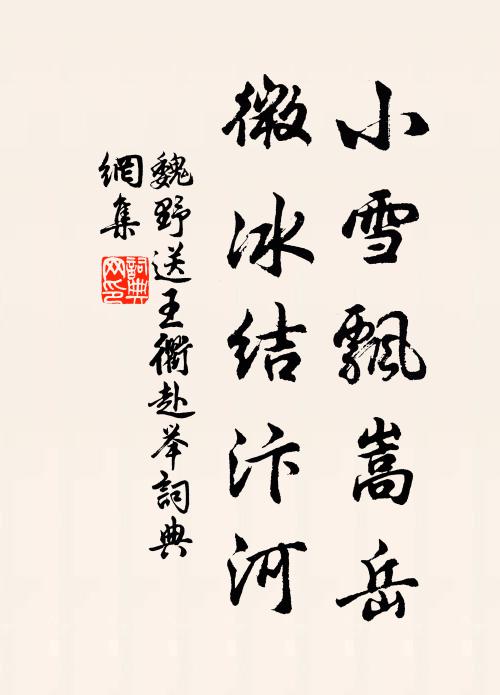 小雪飄嵩岳
微冰結汴河
魏野送王衢赴举詞典
網集
詞典網印